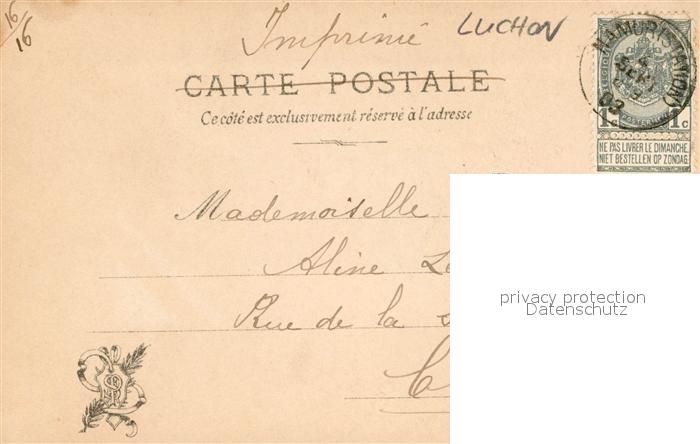 16/16
Imprimé
LUCHON
CARTE POSTALE
Ce côté est exclusivement réservé à l'adresse
NAMUR (STATION)
03
1c 1c
NE PAS LIVRER LE DIMANCHE
NIET BESTELLEN OP ZONDAG
Mademoiselle
Aline
Rue de la
privacy protection
Datenschutz